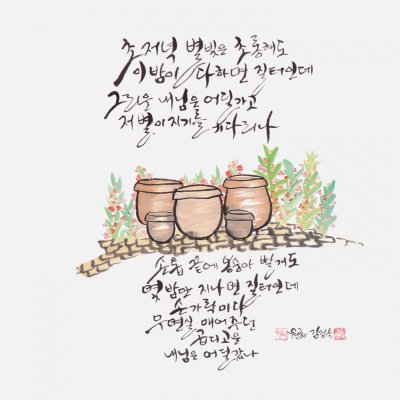 초저녁 별빛은 초롱해도
이밤이 다하면 질터인데
그리운 내님은 어딜가고
저 별이 지기를 기다리나
손톱 끝에 봉숭아 빨개도
몇밤만 지나면 질터인데
손가락마다
무명실 매어주던
곱디고운
내님은 어딜갔나